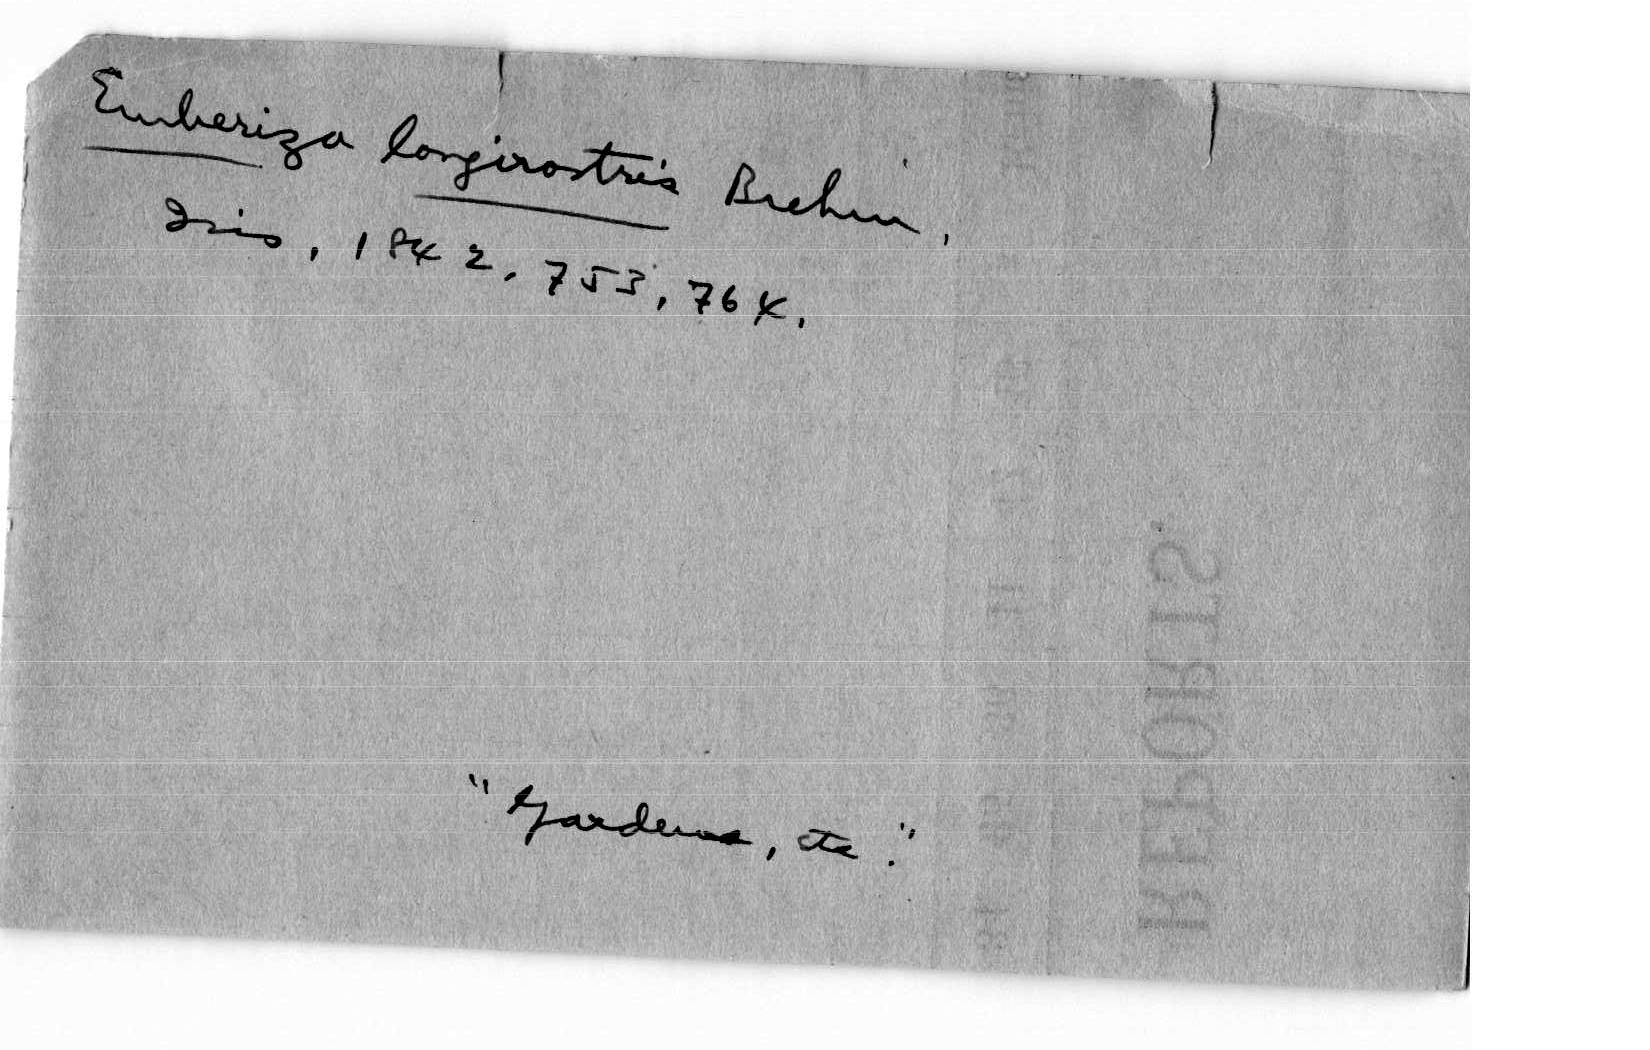 Emberiza longirostris Brehm,
Isis, 1842, 753, 764.
"Gardens, etc."
REPORTS